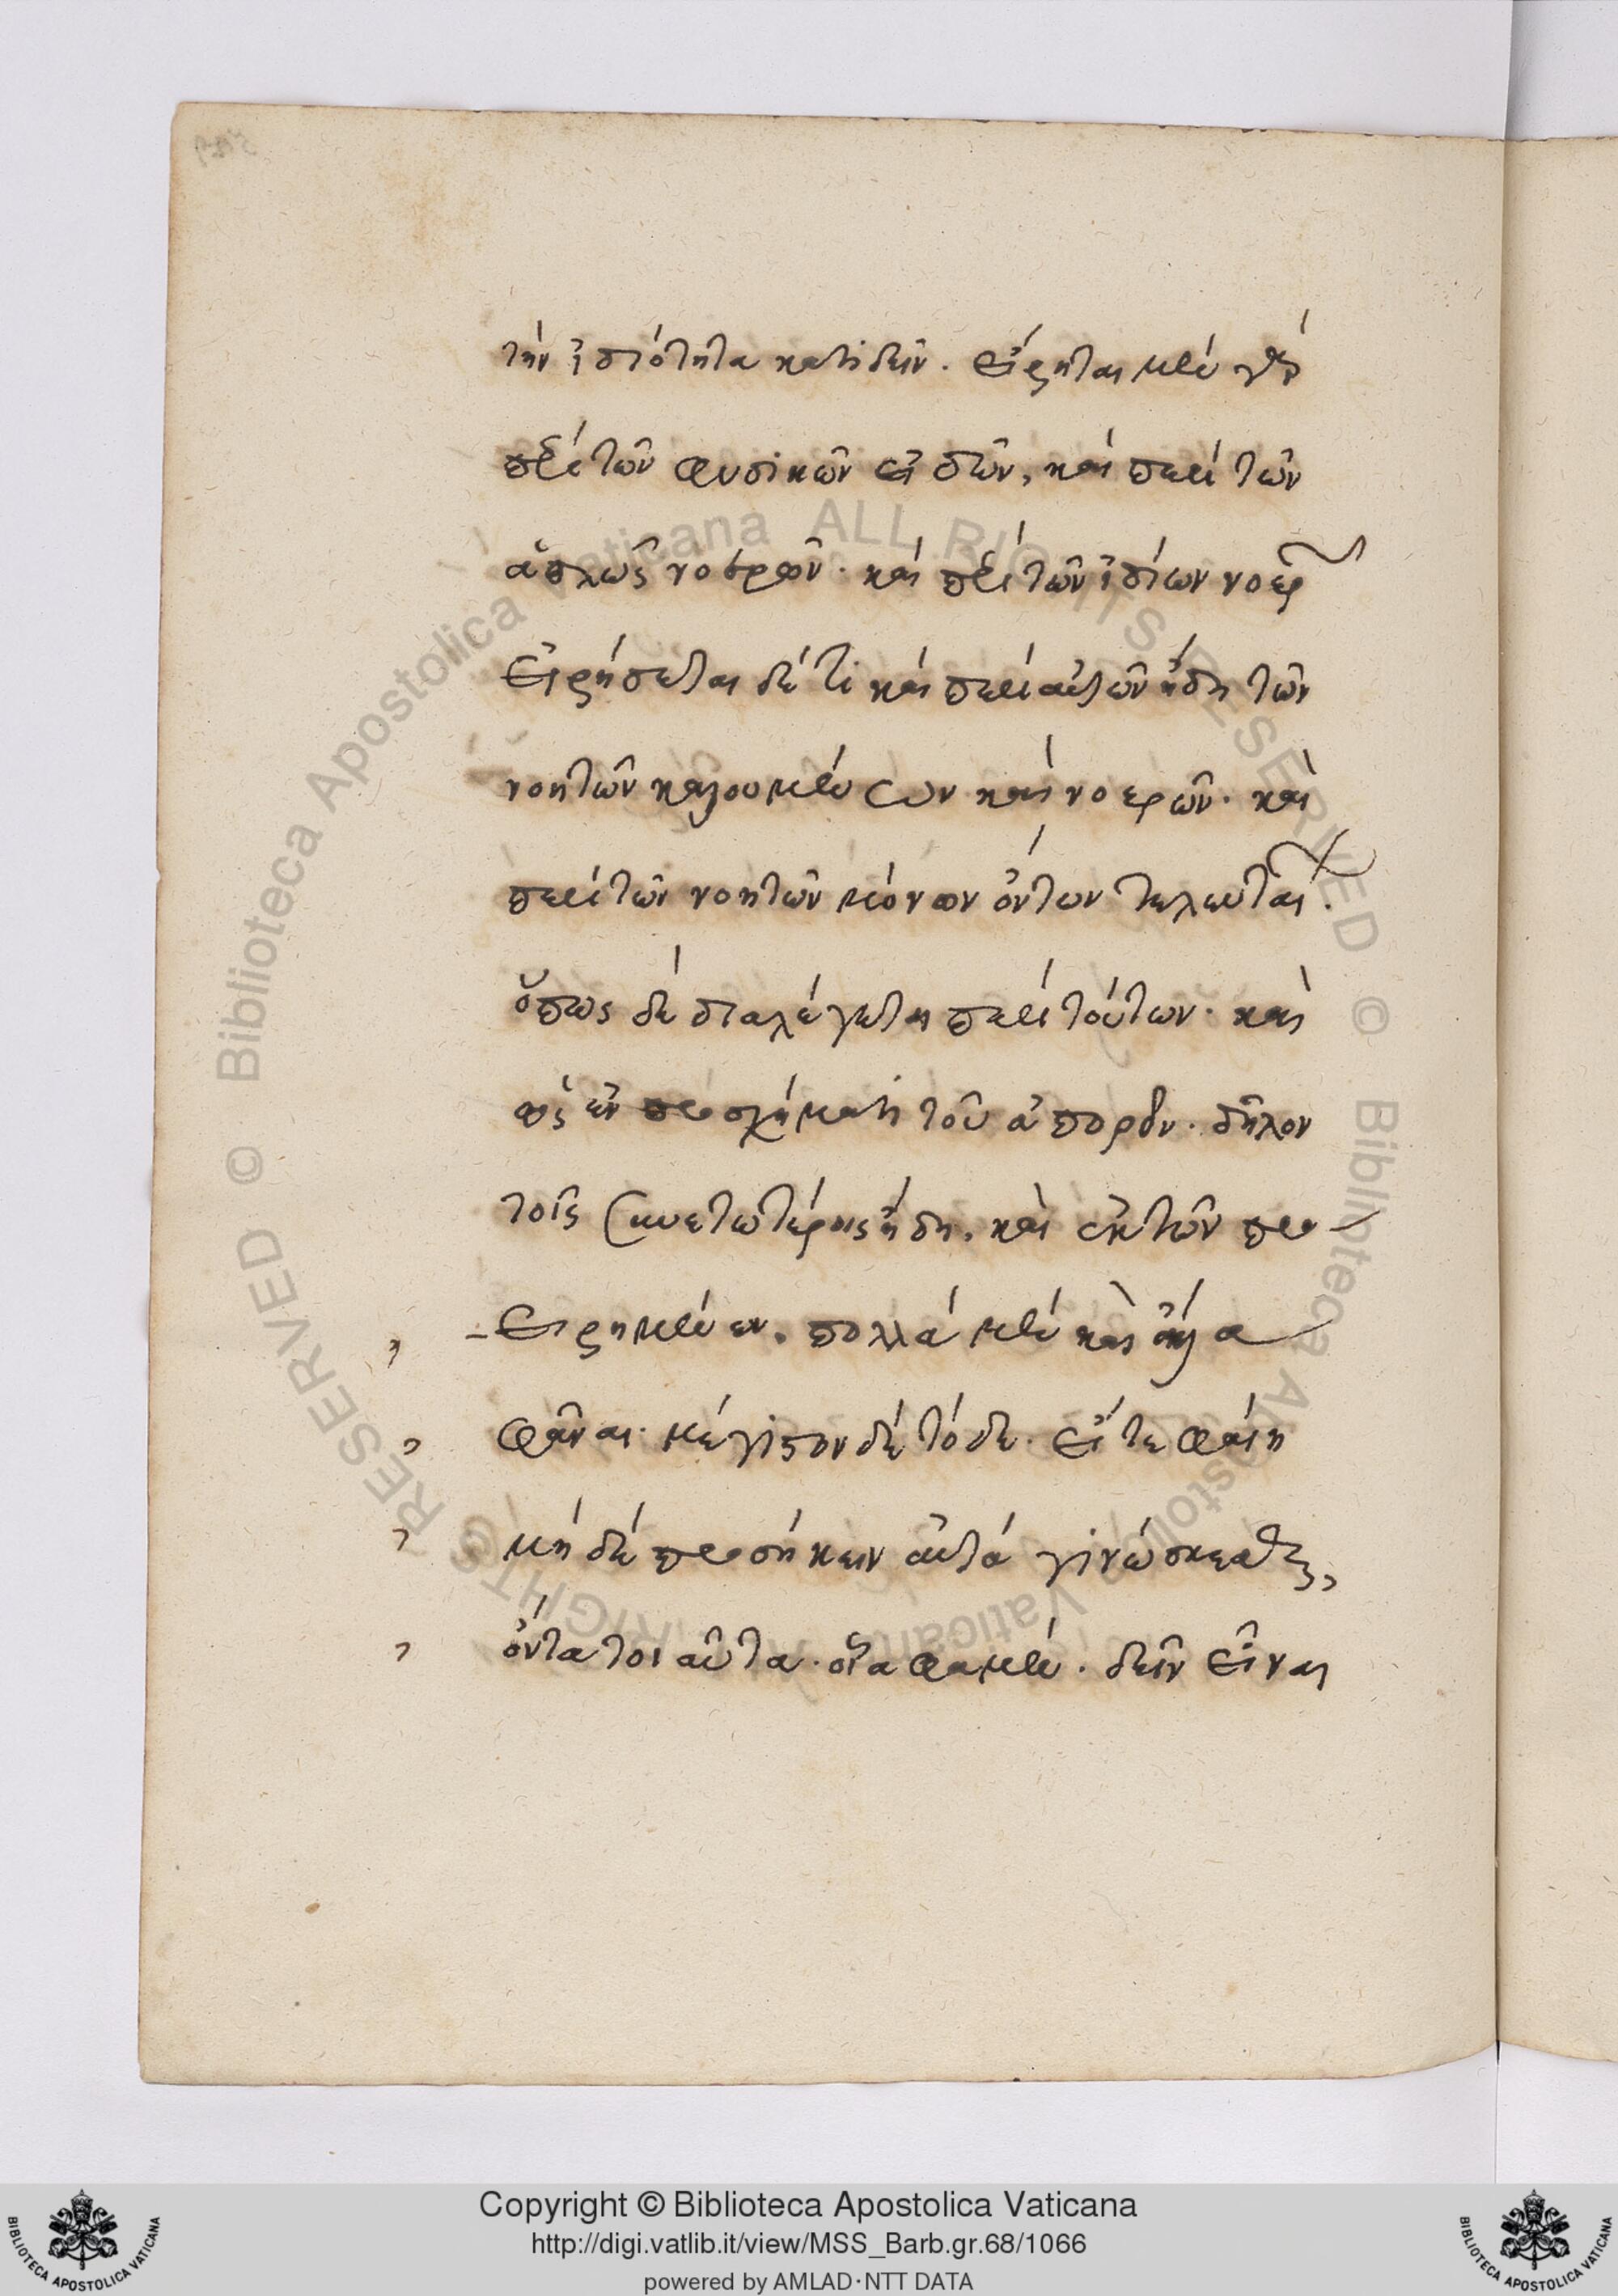 τὴν ἰδιότητα κατιδεῖν. εἴρηται μὲν γὰρ
περὶ τῶν φυσικῶν εἰδῶν, καὶ περὶ τῶν
ἁπλῶς νοερῶν. καὶ περὶ τῶν ἰδίων νοερῶν
εἰρήσεται δέ τι καὶ περὶ αὐτῶν ἤδη τῶν
νοητῶν καλουμένων καὶ νοερῶν. καὶ
περὶ τῶν νοητῶν μόνον ὄντων τελευταῖον.
ὅπως δὲ διαλέγεται περὶ τούτων. καὶ
ὡς ἐν προσχήματι τοῦ ἀπορεῖν. δῆλον
τοῖς συνετωτέροις ἤδη. καὶ ἐκ τῶν προ
εἰρημένων. πολλὰ μὲν καὶ ἄλλα
φᾶναι. μέγιστον δὲ τόδε. εἴ τε φαίη
μὴ δὲ προσήκειν αὐτὰ γινώσκεσθαι,
ὄντα τοιαῦτα. οἷα φαμὲν. δεῖν εἶναι
Copyright © Biblioteca Apostolica Vaticana
http://digi.vatlib.it/view/MSS_Barb.gr.68/1066
powered by AMLAD·NTT DATA
BIBLIOTECA APOSTOLICA VATICANA
BIBLIOTECA APOSTOLICA VATICANA
© Biblioteca Apostolica Vaticana ALL RIGHTS RESERVED © Biblioteca Apostolica Vaticana ALL RIGHTS RESERVED